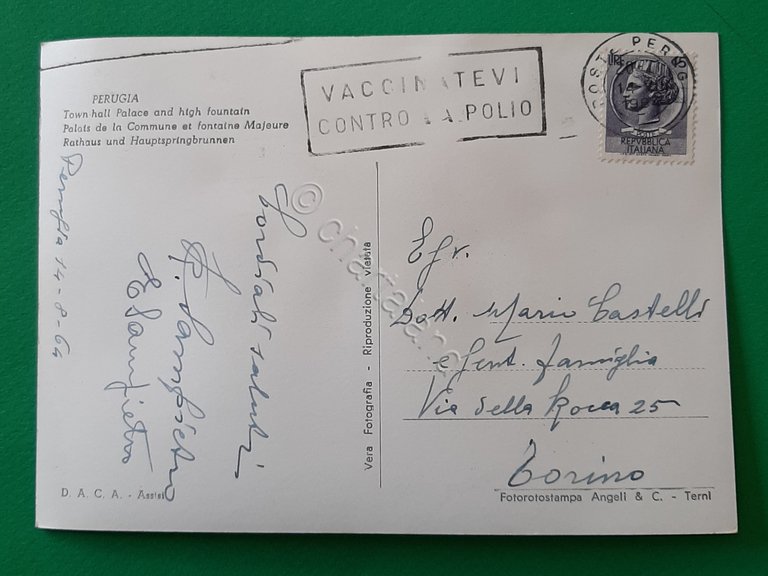 PERUGIA
Town hall Palace and high fountain
Palais de la Commune et fontaine Majeure
Rathaus und Hauptspringbrunnen
VACCINATEVI
CONTRO LA POLIO
POSTE PERUG
LIRE
POSTE
REPVBBLICA
ITALIANA
Perugia 14-8-64
Cordiali saluti
Vera Fotografia - Riproduzione vietata
Egr.
Dott. Mario Castelli
e Gent. famiglia
Via della Rocca 25
Torino
D. A. C. A. - Assisi
Fotorotostampa Angeli & C. - Terni
©